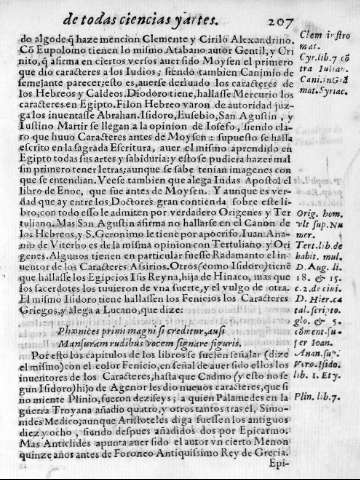 de todas ciencias y artes. 207
do algo de q̃ haze mencion Clemente y Cirilo Alexandrino.
Cõ Eupolomo tienen lo mismo Atabano autor Gentil, y Cri
nito, q̃ afirma en ciertos versos auer sido Moysen el primero
que dio caracteres a los Iudios; siendo tambien Canimio de
semejante parecer; esto es, auerse deriuado los caracteres de
los Hebreos y Caldeos. Diodoro tiene, hallasse Mercurio los
caracteres en Egipto. Filon Hebreo varon de autoridad juz-
ga los inuentasse Abrahan. Isidoro, Eusebio, San Agustin, y
Iustino Martir se llegan a la opinion de Iosefo, siendo cla-
ro que huuo Caracteres antes de Moysen: supuesto se halla
escrito en la sagrada Escritura, auer el mismo aprendido en
Egipto todas sus artes y sabiduria; y esto se pudiera hazer mal
sin primero tener letras, aunque se sabe tenian imagenes con
que se entendian. Veese tambien que alega Iudas Apostol el
libro de Enoc, que fue antes de Moysen. Y aunque es ver-
dad que ay entre los Doctores gran contienda sobre este li-
bro, con todo esso le admiten por verdadero Origenes y Ter
tuliano. Mas San Agustin afirma no hallarse en el Canon de
los Hebreos, y S. Geronimo le tiene por apocrifo. Iuan Anio
de Viterbo es de la misma opinion con Tertuliano y Ori
genes. Algunos tienen en particular fuesse Radamanto el in
uentor de los Caracteres Asirios. Otros (como Isidoro) tiene
que hallasse los Egipcios Isis Reyna, hija de Hinaco, mas que
los sacerdotes los truxeron de vna suerte, y el vulgo de otra.
El mismo Isidoro tiene hallassen los Fenicios los Caracteres
Griegos, y alega a Lucano, que dize:
Phænices primi magni si creditur, ausi
Mansuram rudibus vocem signare figuris.
Por esto los capitulos de los libros se suelen señalar (dize
el mismo) con el color Fenicio, en señal de auer sido ellos los
inuentores de los Caracteres, hasta que Cadino (y esto no se
gun Isidoro) hijo de Agenor les dio nueuos caracteres, que si
no miente Plinio, fueron deziseys; a quien Palamedes en la
guerra Troyana añadio quatro, y otros tantos tras el, Simo-
nides Medico, aunque Aristoteles diga fuessen los antiguos
diez y ocho, siendo despues añadidos dos por Epicarmo.
Mas Anticlides apunta auer sido el autor vn cierto Menon
quinze años antes de Foroneo Antiquissimo Rey de Grecia.
Epi-
Clem in stro
mat.
Cyr. lib. 7 cõ
tra Iulian.
Cani. in Grã
mat. Syriac.
Orig. hom.
vlt sup. Nu
mer.
Tert. lib. de
habit. mul.
D. Aug. li.
18. & 15.
c. 2. de ciui.
D. Hier. ca
tal. scripto.
glo. & 5.
cõment. su-
per Ioan.
Anan. sup.
Viro. Isido.
lib. 1. Et 7.
Plin. lib. 7.